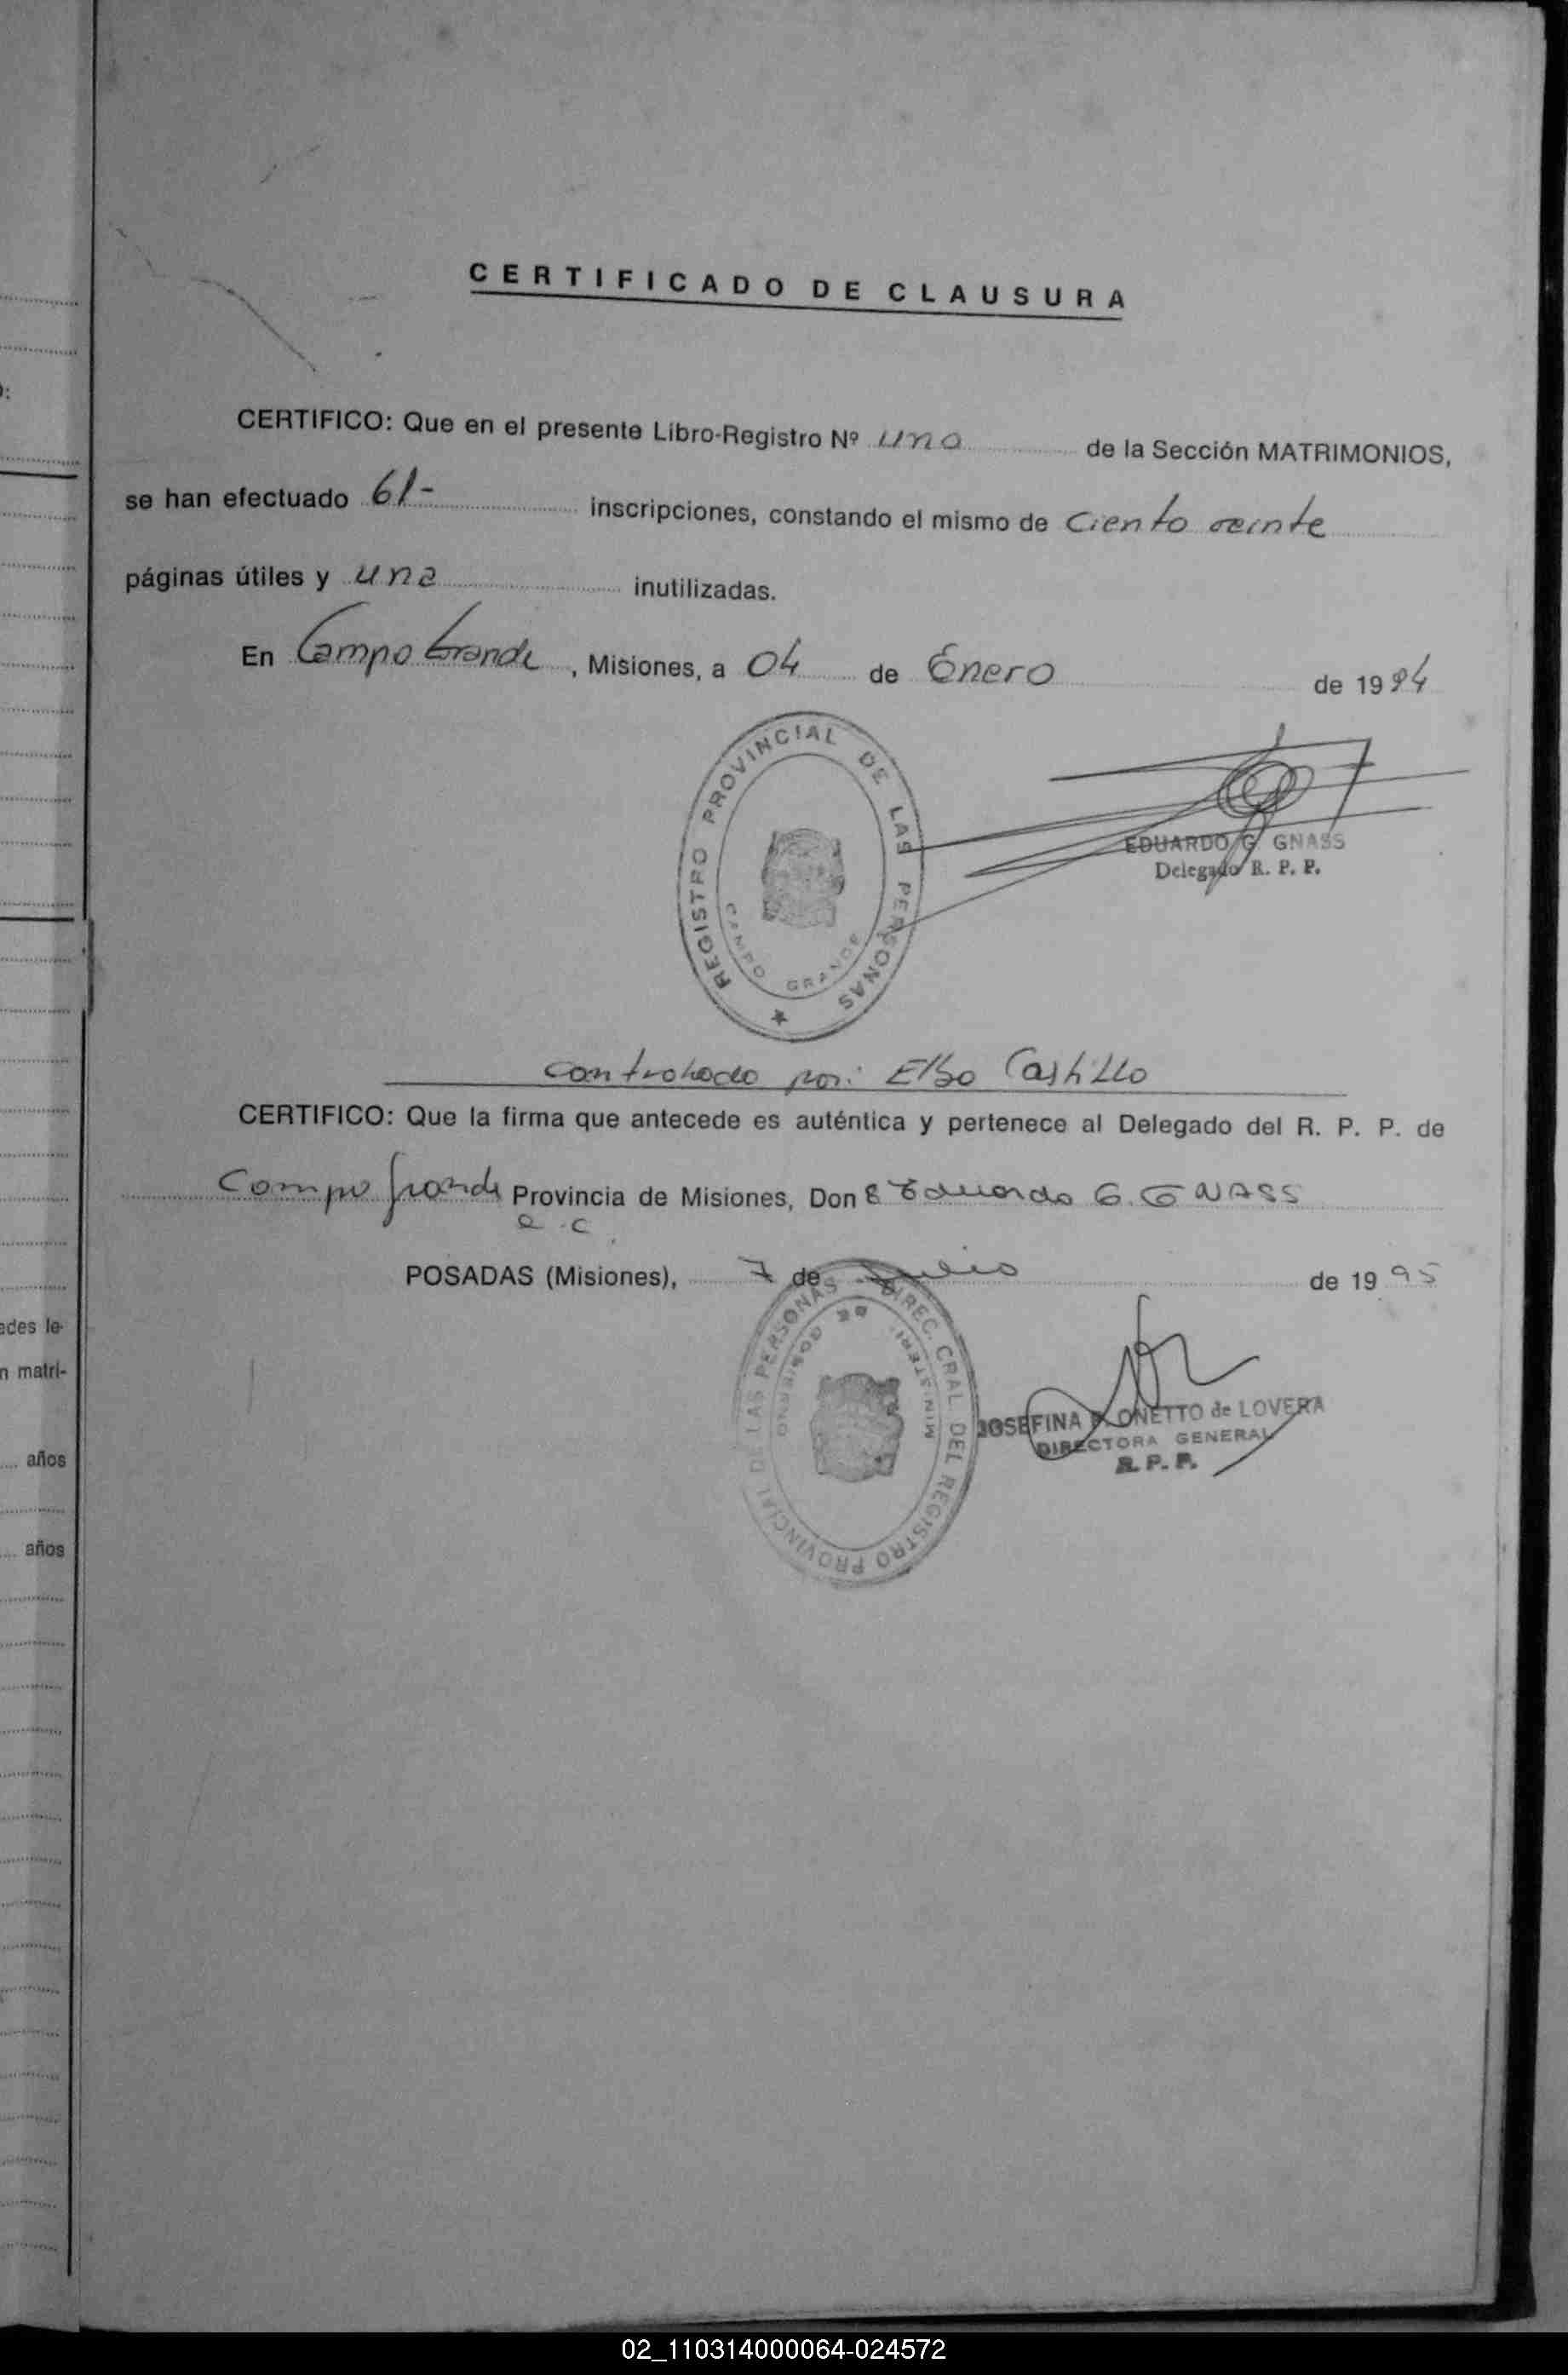 CERTIFICADO DE CLAUSURA
CERTIFICO: Que en el presente Libro-Registro Nº uno de la Sección MATRIMONIOS,
se han efectuado 61- inscripciones, constando el mismo de Ciento veinte
páginas útiles y una inutilizadas.
En Campo Grande, Misiones, a 04 de Enero de 1994
REGISTRO PROVINCIAL DE LAS PERSONAS
CAMPO GRANDE
EDUARDO G. GNASS
Delegado R. P. P.
Controlado por: Elso Castillo
CERTIFICO: Que la firma que antecede es auténtica y pertenece al Delegado del R. P. P. de
Campo Grande Provincia de Misiones, Don Eduardo G. GNASS
a.c
POSADAS (Misiones), 7 de Julio de 1995
DIREC. GRAL. DEL REGISTRO PROVINCIAL DE LAS PERSONAS
MINISTERI DE GOBIERNO
JOSEFINA ONETTO de LOVERA
DIRECTORA GENERAL
R. P. P.
O:
edes le-
n matri-
años
años
02_110314000064-024572